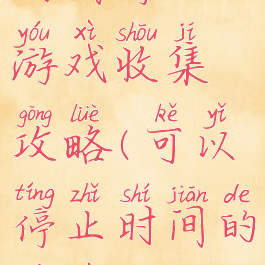 yóu xì shōu jí
游戏收集
gōng lüè kě yǐ
攻略(可以
tíng zhǐ shí jiān de
停止时间的